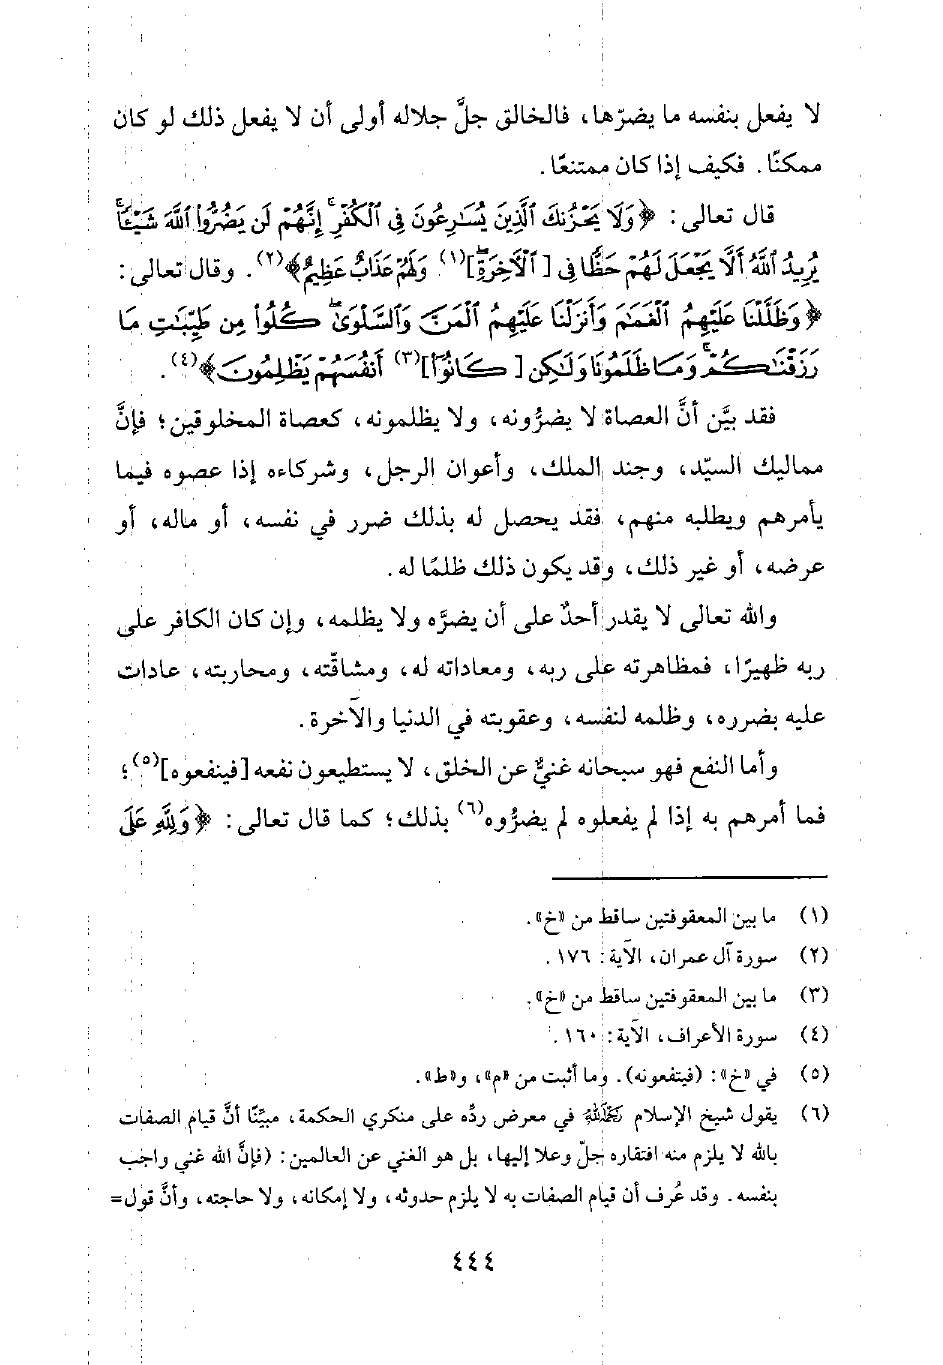 لا يفعل بنفسه ما يضرّها، فالخالق جلَّ جلاله أولى أن لا يفعل ذلك لو كان
ممكنًا. فكيف إذا كان ممتنعًا.
قال تعالى: ﴿وَلَا يَحْزُنكَ ٱلَّذِينَ يُسَٰرِعُونَ فِى ٱلْكُفْرِ ۚ إِنَّهُمْ لَن يَضُرُّوا۟ ٱللَّهَ شَيْـًٔا ۗ
يُرِيدُ ٱللَّهُ أَلَّا يَجْعَلَ لَهُمْ حَظًّا فِى [ٱلْـَٔاخِرَةِ ۖ](١) وَلَهُمْ عَذَابٌ عَظِيمٌ﴾(٢). وقال تعالى:
﴿وَظَلَّلْنَا عَلَيْهِمُ ٱلْغَمَٰمَ وَأَنزَلْنَا عَلَيْهِمُ ٱلْمَنَّ وَٱلسَّلْوَىٰ ۖ كُلُوا۟ مِن طَيِّبَٰتِ مَا
رَزَقْنَٰكُمْ ۚ وَمَا ظَلَمُونَا وَلَٰكِن [كَانُوٓا۟](٣) أَنفُسَهُمْ يَظْلِمُونَ﴾(٤).
فقد بيَّن أنَّ العصاة لا يضرُّونه، ولا يظلمونه، كعصاة المخلوقين؛ فإنَّ
مماليك السيّد، وجند الملك، وأعوان الرجل، وشركاءه إذا عصوه فيما
يأمرهم ويطلبه منهم، فقد يحصل له بذلك ضرر في نفسه، أو ماله، أو
عرضه، أو غير ذلك، وقد يكون ذلك ظلمًا له.
والله تعالى لا يقدر أحدٌ على أن يضرَّه ولا يظلمه، وإن كان الكافر على
ربه ظهيرًا، فمظاهرته على ربه، ومعاداته له، ومشاقّته، ومحاربته، عادات
عليه بضرره، وظلمه لنفسه، وعقوبته في الدنيا والآخرة.
وأما النفع فهو سبحانه غنيٌّ عن الخلق، لا يستطيعون نفعه [فينفعوه](٥)؛
فما أمرهم به إذا لم يفعلوه لم يضرُّوه(٦) بذلك؛ كما قال تعالى: ﴿وَلِلَّهِ عَلَى
(١) ما بين المعقوفتين ساقط من «خ».
(٢) سورة آل عمران، الآية: ١٧٦.
(٣) ما بين المعقوفتين ساقط من «خ».
(٤) سورة الأعراف، الآية: ١٦٠.
(٥) في «خ»: (فيتفعونه). وما أثبت من «م»، و«ط».
(٦) يقول شيخ الإسلام رحمه الله في معرض ردّه على منكري الحكمة، مبيّنًا أنَّ قيام الصفات
بالله لا يلزم منه افتقاره جلّ وعلا إليها، بل هو الغني عن العالمين: (فإنَّ الله غني واجب
بنفسه. وقد عُرف أن قيام الصفات به لا يلزم حدوثه، ولا إمكانه، ولا حاجته، وأنَّ قول=
٤٤٤